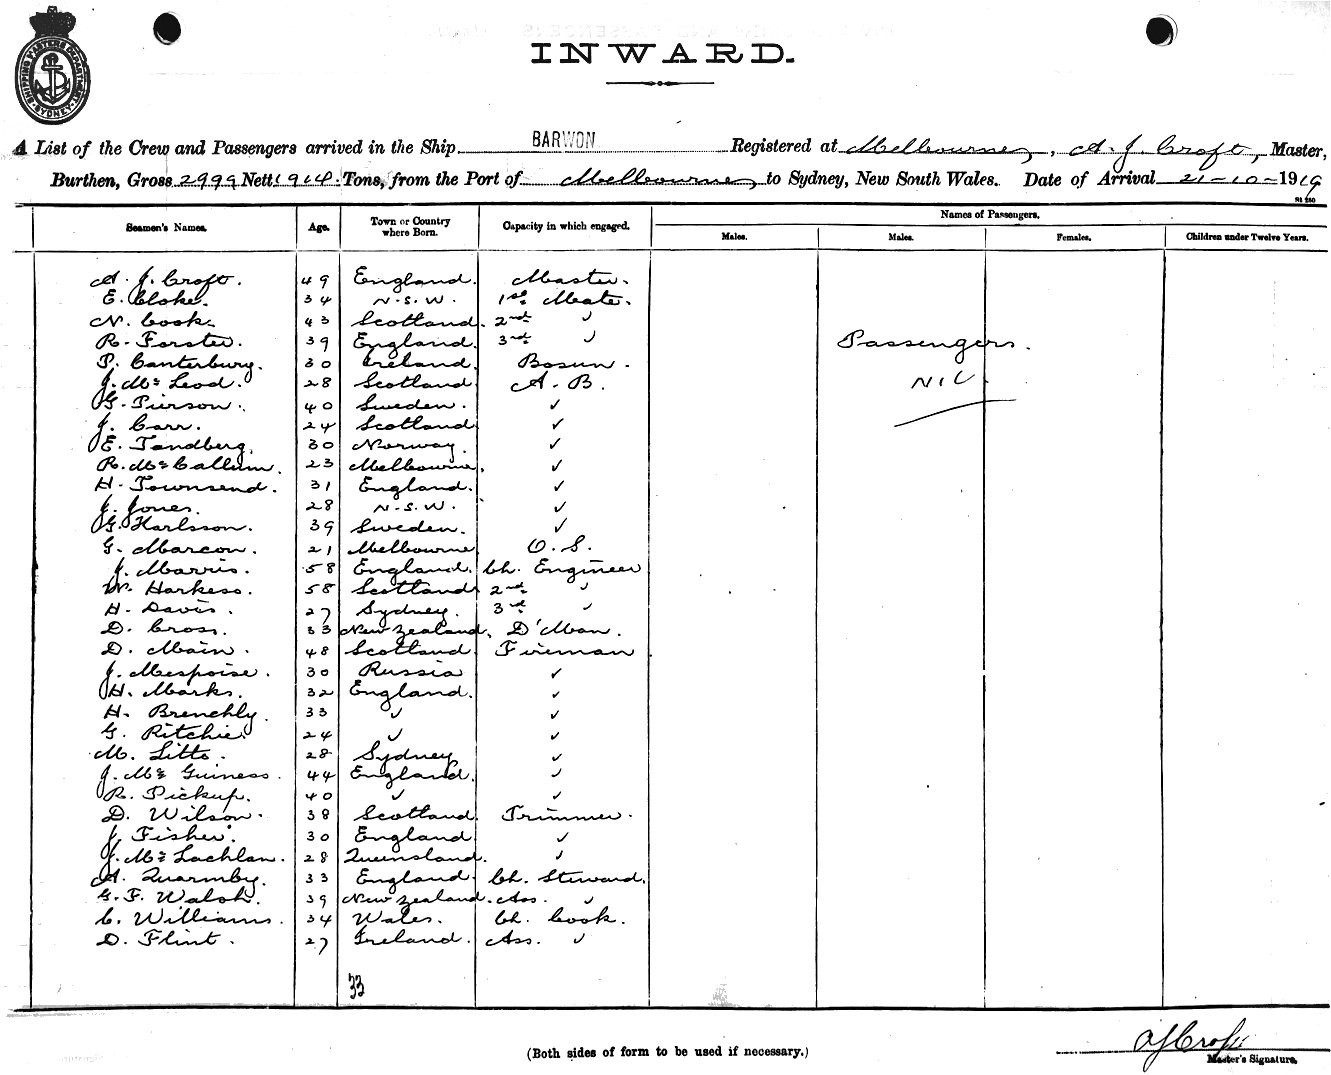 SHIPPING MASTERS DEPARTMENT SYDNEY
INWARD.
A List of the Crew and Passengers arrived in the Ship BARWON Registered at Melbourne, A. J. Croft, Master,
Burthen, Gross 2999 Nett 1904 Tons, from the Port of Melbourne to Sydney, New South Wales. Date of Arrival 21-10-1919
Seamen's Names. Age. Town or Country where Born. Capacity in which engaged. Names of Passengers.
Males. Males. Females. Children under Twelve Years.
A. J. Croft. 49 England. Master.
E. Cloke. 34 N.S.W. 1st Mate.
N. Cook. 43 Scotland. 2nd "
R. Forster. 39 England. 3rd "
Passengers.
P. Canterbury. 30 Ireland. Bosun.
J. Mc Leod. 28 Scotland A. B.
NIL.
G. Pierson. 40 Sweden. ✓
J. Carr. 24 Scotland ✓
E. Tandberg. 30 Norway. ✓
R. Mc Callum. 23 Melbourne. ✓
H. Townsend. 31 England. ✓
J. Jones. 28 N.S.W. ✓
G. Karlsson. 39 Sweden. ✓
G. Marcon. 21 Melbourne O. S.
J. Marris. 58 England. Ch. Engineer
W. Harkess. 58 Scotland 2nd "
H. Davis. 27 Sydney. 3rd "
D. Cross. 33 New Zealand. D'Man.
D. Main. 48 Scotland. Fireman
J. Mespoise. 30 Russia ✓
H. Marks. 32 England. ✓
H. Brenchly. 33 ✓ ✓
G. Ritchie. 24 ✓ ✓
M. Litto. 28 Sydney ✓
J. Mc Guiness. 44 England. ✓
R. Pickup. 40 ✓ ✓
D. Wilson. 38 Scotland Trimmer.
J. Fisher. 30 England ✓
J. Mc Lachlan. 28 Queensland. ✓
A. Quarmby. 33 England. Ch. Steward.
G. F. Walsh. 39 New Zealand. Ass. "
C. Williams. 34 Wales. Ch. Cook.
D. Flint. 27 Ireland. Ass. "
33
(Both sides of form to be used if necessary.)
A J Croft
Master's Signature.